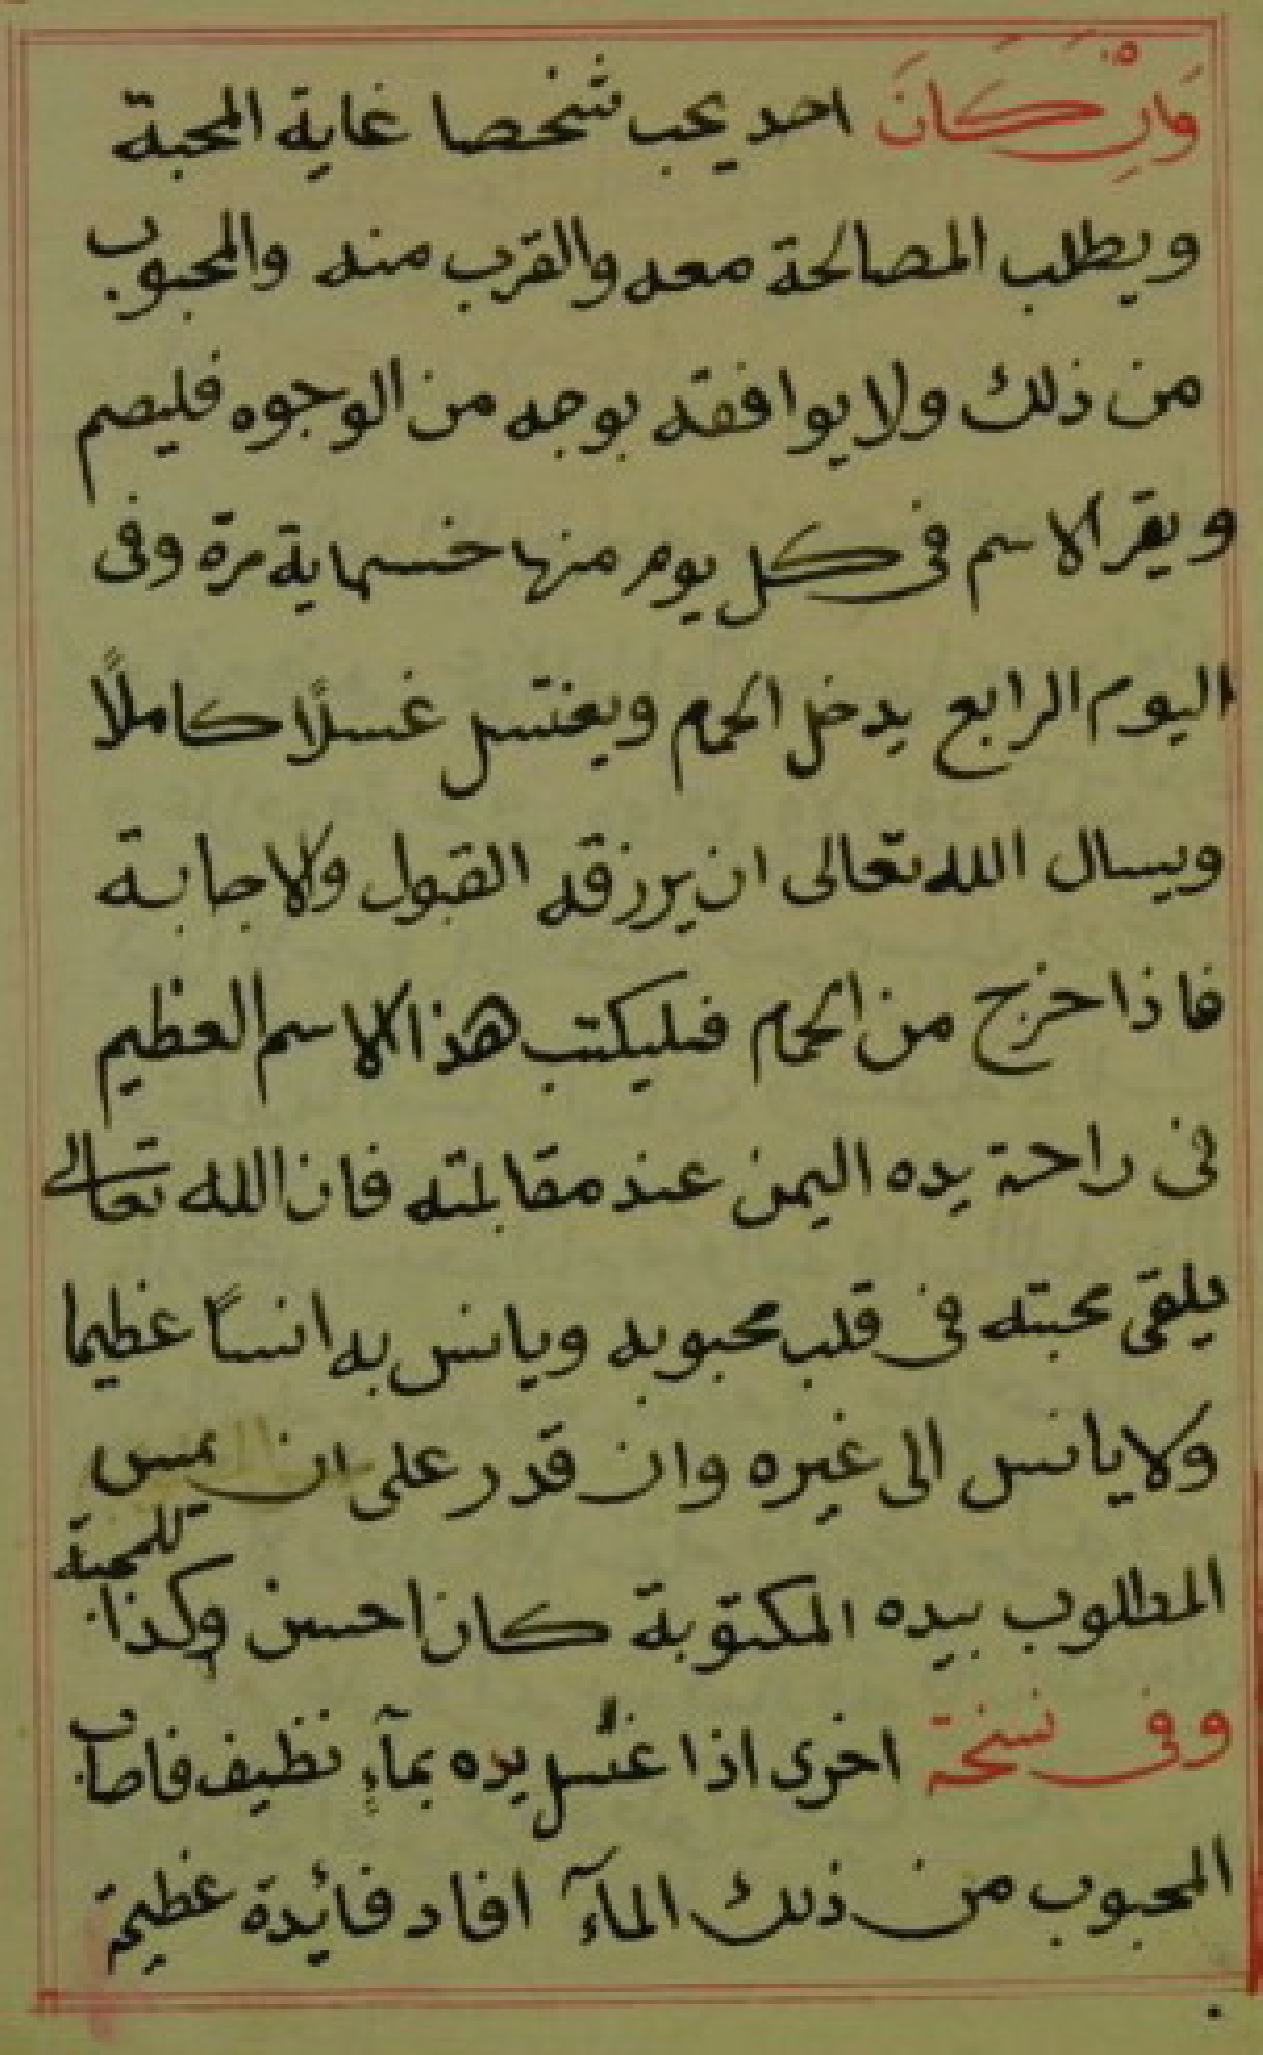 وَاِنْ كَانَ احد يحب شخصا غاية المحبة
ويطلب المصالحة معه والقرب منه والمحبوب
من ذلك ولا يوافقه بوجه من الوجوه فليصم
ويقر الاسم فى كل يوم منها خسماية مرة وفى
اليوم الرابع يدخل الحمام ويغتسل غسلًا كاملًا
ويسال الله تعالى ان يرزقه القبول والاجابة
فاذا خرج من الحمام فليكتب هذا الاسم العظيم
فى راحة يده اليمن عند مقابلته فان الله تعالى
يلقى محبته فى قلب محبوبه ويانس به انسًا عظيما
ولا يانس الى غيره وان قدر على ان يمس
المطلوب بيده المكتوبة كان احسن وكذا للمحبة
وفى نسخة اخرى اذا غسل يده بمآءٍ نظيف فاصاب
المحبوب من ذلك المآء افاد فائدة عظيمة